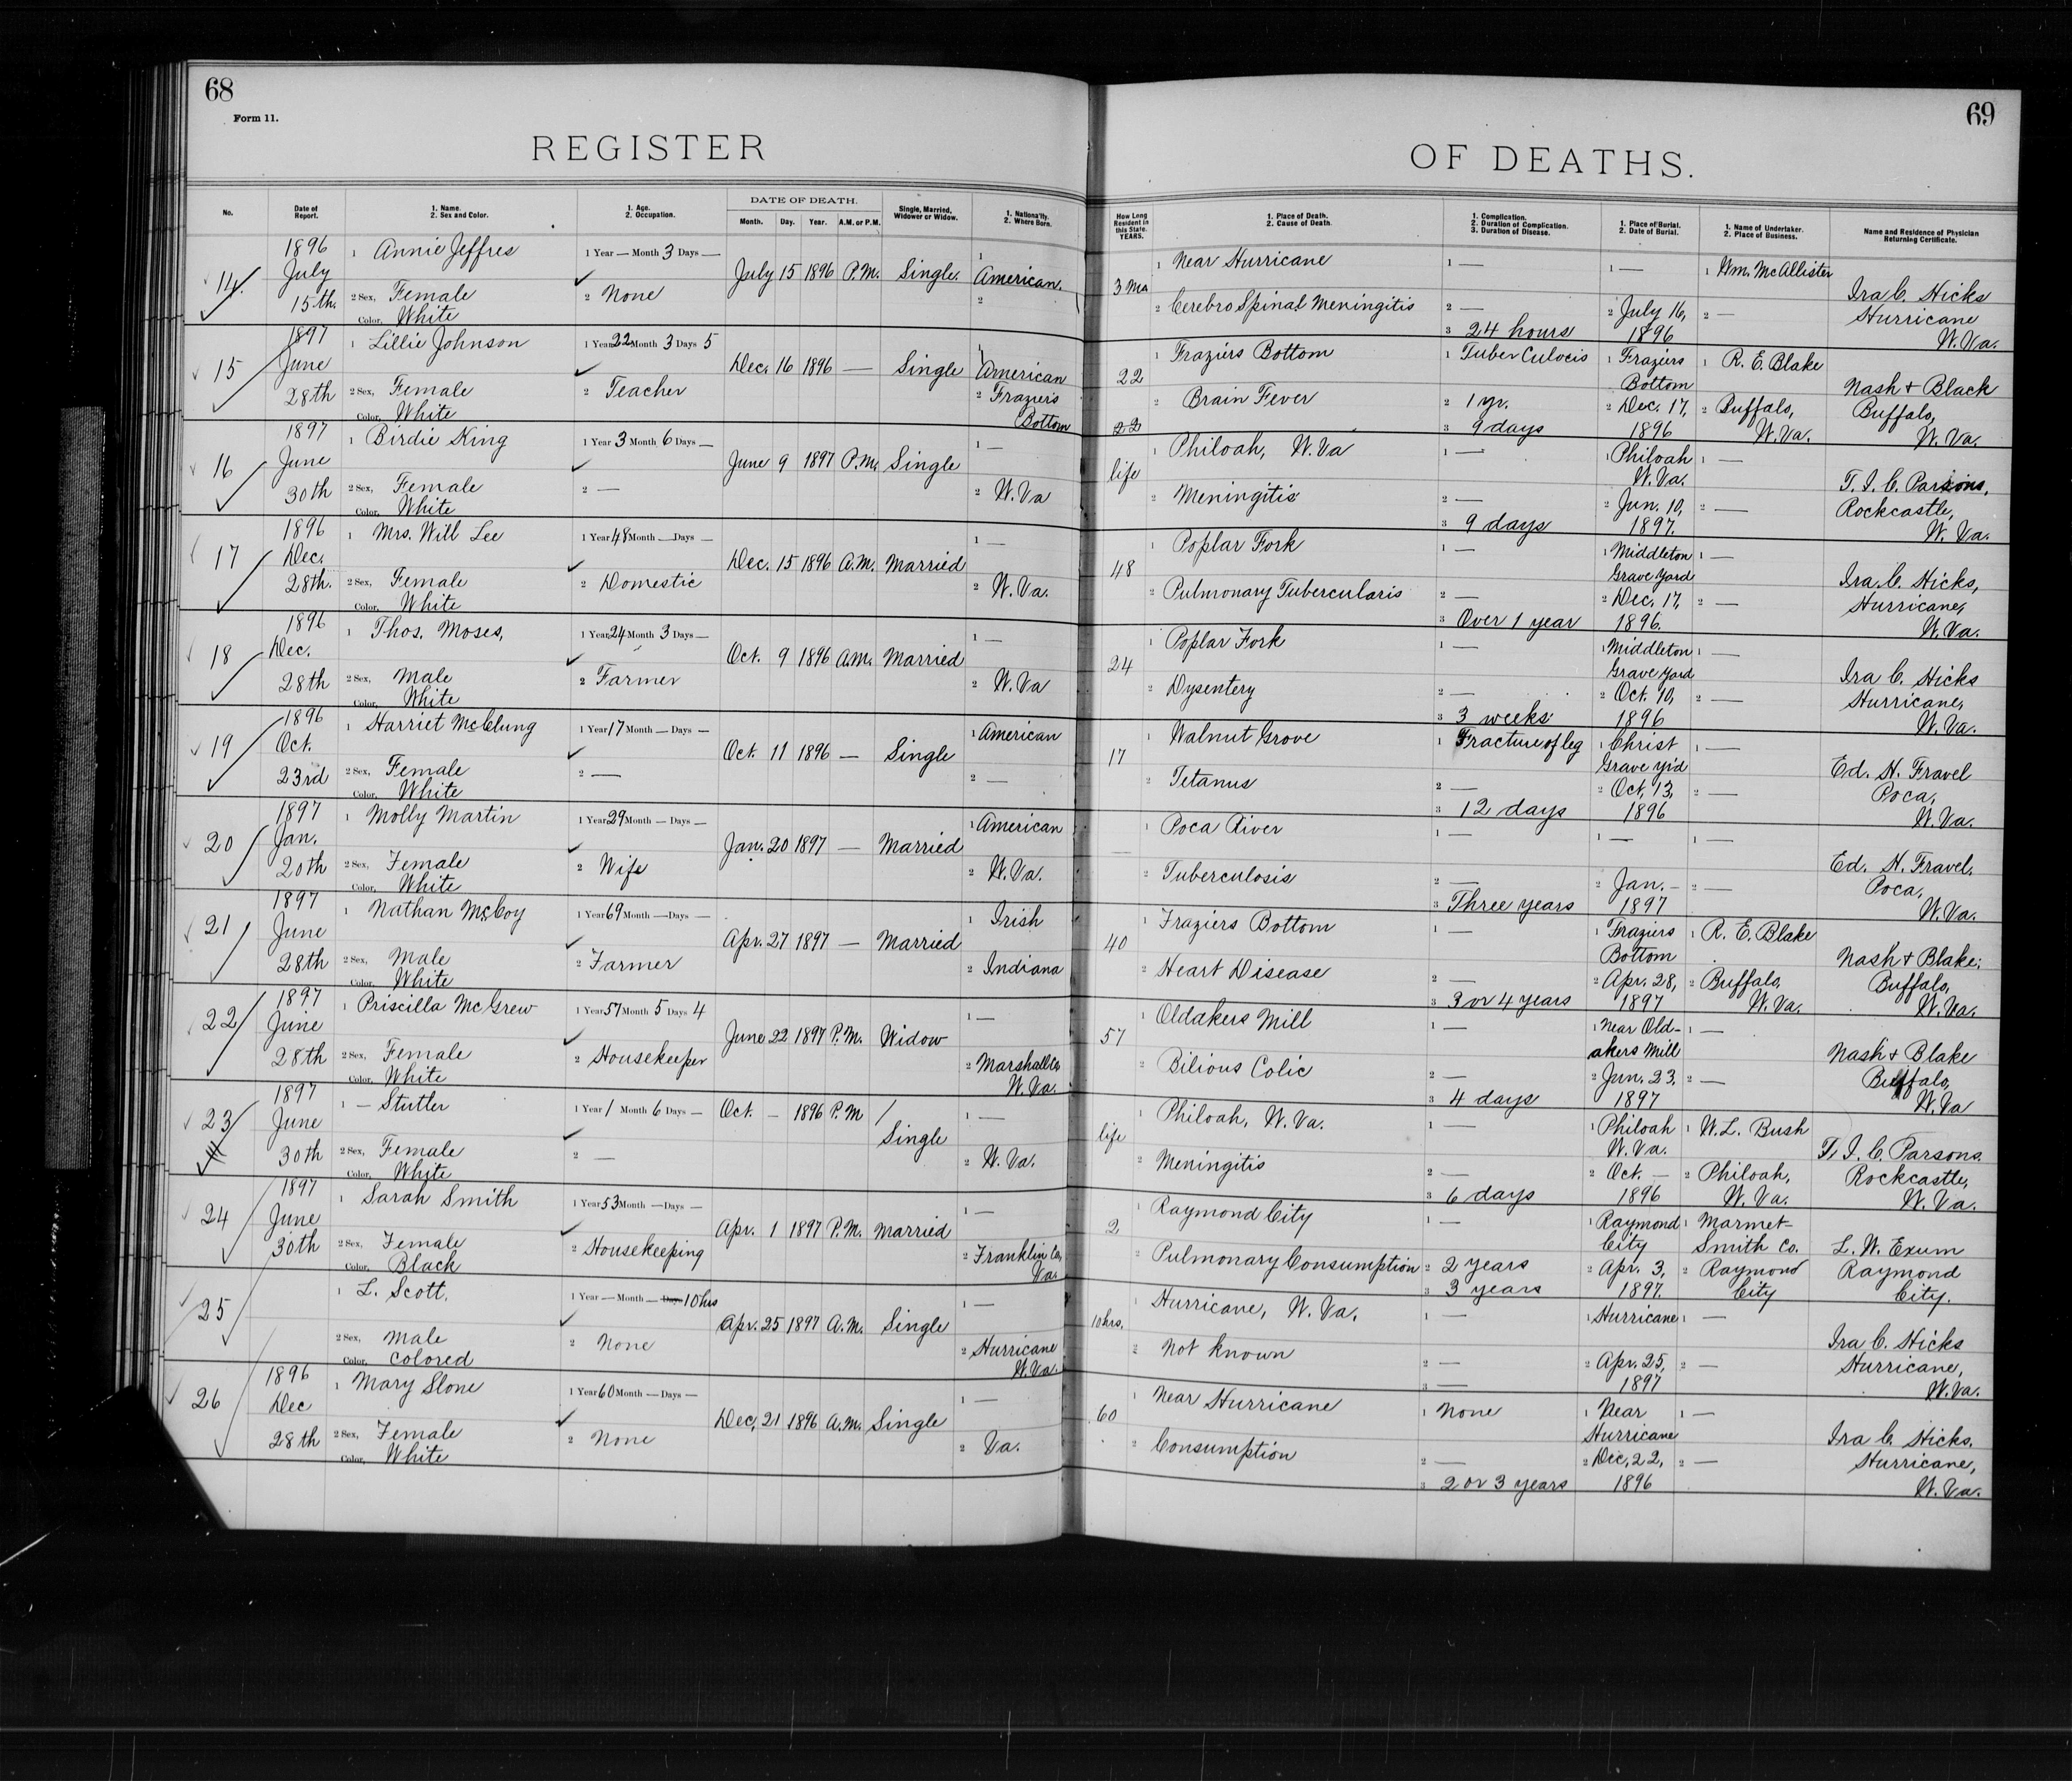 68
Form 11.
REGISTER
No.
Date of Report.
1. Name.
2. Sex and Color.
1. Age.
2. Occupation.
DATE OF DEATH.
Month. Day. Year. A.M. or P.M.
Single, Married, Widower or Widow.
1. Nationality.
2. Where Born.
14. 1896 July 15th. 1 Annie Jeffres 1 Year — Month 3 Days — July 15 1896 P.M. Single. 1 American.
2 Sex, Female 2 None 2
Color, White
15 1897 June 28th 1 Lillie Johnson 1 Year 22 Month 3 Days 5 Dec. 16 1896 — Single 1 American
2 Sex, Female 2 Teacher 2 Fraziers Bottom
Color, White
16 1897 June 30th 1 Birdie King 1 Year 3 Month 6 Days — June 9 1897 P.M. Single 1 —
2 Sex, Female 2 — 2 W. Va
Color, White
17 1896 Dec. 28th. 1 Mrs. Will Lee 1 Year 48 Month — Days — Dec. 15 1896 A.M. Married 1 —
2 Sex, Female 2 Domestic 2 W. Va.
Color, White
18 1896 Dec. 28th 1 Thos. Moses, 1 Year 24 Month 3 Days — Oct. 9 1896 A.M. Married 1 —
2 Sex, Male 2 Farmer 2 W. Va
Color, White
19 1896 Oct. 23rd 1 Harriet McClung 1 Year 17 Month — Days — Oct. 11 1896 — Single 1 American
2 Sex, Female 2 — 2 —
Color, White
20 1897 Jan. 20th 1 Molly Martin 1 Year 29 Month — Days — Jan. 20 1897 — Married 1 American
2 Sex, Female 2 Wife 2 W. Va.
Color, White
21 1897 June 28th 1 Nathan McCoy 1 Year 69 Month — Days — Apr. 27 1897 — Married 1 Irish
2 Sex, Male 2 Farmer 2 Indiana
Color, White
22 1897 June 28th 1 Priscilla McGrew 1 Year 57 Month 5 Days 4 June 22 1897 P.M. Widow 1 —
2 Sex, Female 2 Housekeeper 2 Marshall Co. W. Va.
Color, White
23 1897 June 30th 1 — Stutler 1 Year 1 Month 6 Days — Oct. — 1896 P.M Single 1 —
2 Sex, Female 2 — 2 W. Va.
Color, White
24 1897 June 30th 1 Sarah Smith 1 Year 53 Month — Days — Apr. 1 1897 P.M. Married 1 —
2 Sex, Female 2 Housekeeping 2 Franklin Co, Va.
Color, Black
25 1 L. Scott. 1 Year — Month — Days 10 hrs Apr. 25 1897 A.M. Single 1 —
2 Sex, Male 2 None 2 Hurricane W. Va.
Color, Colored
26 1896 Dec 28th 1 Mary Slone 1 Year 60 Month — Days — Dec. 21 1896 A.M. Single 1 —
2 Sex, Female 2 None 2 Va.
Color, White
69
OF DEATHS.
How Long Resident in this State. YEARS.
1. Place of Death.
2. Cause of Death.
1. Complication.
2. Duration of Complication.
3. Duration of Disease.
1. Place of Burial.
2. Date of Burial.
1. Name of Undertaker.
2. Place of Business.
Name and Residence of Physician Returning Certificate.
3 Mo 1 Near Hurricane 1 — 1 — 1 Wm. McAllister Ira C. Hicks
2 Cerebro Spinal Meningitis 2 — 2 July 16, 1896 2 — Hurricane W. Va.
3 24 hours
22 1 Fraziers Bottom 1 Tuberculocis 1 Fraziers Bottom 1 R. E. Blake Nash & Black
22 2 Brain Fever 2 1 yr. 2 Dec. 17, 1896 2 Buffalo, W. Va. Buffalo, W. Va.
3 9 days
life 1 Philoah, W. Va 1 — 1 Philoah W. Va. 1 — T. I. C. Parsons,
2 Meningitis 2 — 2 Jun. 10, 1897. 2 — Rockcastle, W. Va.
3 9 days
48 1 Poplar Fork 1 — 1 Middleton Grave Yard 1 — Ira. C. Hicks,
2 Pulmonary Tubercularis 2 — 2 Dec. 17, 1896. 2 — Hurricane, W. Va.
3 Over 1 year
24 1 Poplar Fork 1 — 1 Middleton Grave Yard 1 — Ira C. Hicks
2 Dysentery 2 — 2 Oct. 10, 1896 2 — Hurricane, W. Va.
3 3 weeks
17 1 Walnut Grove 1 Fracture of leg 1 Christ Grave y'd 1 — Ed. H. Fravel
2 Tetanus 2 — 2 Oct. 13, 1896 2 — Poca, W. Va.
3 12 days
— 1 Poca River 1 — 1 — 1 — Ed. H. Fravel,
2 Tuberculosis 2 — 2 Jan. — 1897 2 — Poca, W. Va.
3 Three years
40 1 Fraziers Bottom 1 — 1 Fraziers Bottom 1 R. E. Blake Nash & Blake,
2 Heart Disease 2 — 2 Apr. 28, 1897 2 Buffalo, W. Va. Buffalo, W. Va.
3 3 or 4 years
57 1 Oldakers Mill 1 — 1 Near Oldakers Mill 1 — Nash & Blake
2 Bilious Colic 2 — 2 Jun. 23, 1897 2 — Buffalo, W. Va
3 4 days
life 1 Philoah, W. Va. 1 — 1 Philoah W. Va. 1 W. L. Bush T. I. C. Parsons.
2 Meningitis 2 — 2 Oct. — 1896 2 Philoah, W. Va. Rockcastle, W. Va.
3 6 days
2 1 Raymond City 1 — 1 Raymond City 1 Marmet-Smith Co. L. W. Exum
2 Pulmonary Consumption 2 2 years 2 Apr. 3, 1897. 2 Raymond City Raymond City.
3 3 years
10 hrs. 1 Hurricane, W. Va. 1 — 1 Hurricane 1 — Ira C. Hicks
2 Not known 2 — 2 Apr. 25, 1897 2 — Hurricane, W. Va.
3 —
60 1 Near Hurricane 1 None 1 Near Hurricane 1 — Ira C. Hicks.
2 Consumption 2 — 2 Dec. 22, 1896 2 — Hurricane, W. Va.
3 2 or 3 years